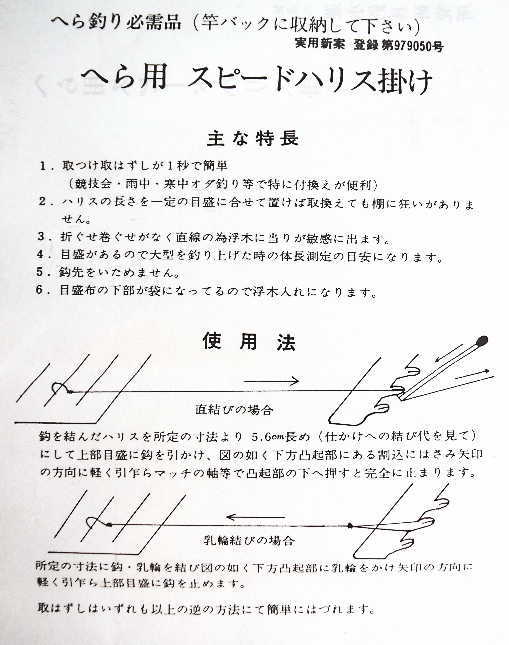 へら釣り必需品（竿バックに収納して下さい）
実用新案 登録第979050号
へら用 スピードハリス掛け
主な特長
1．取つけ取はずしが1秒で簡単
（競技会・雨中・寒中オダ釣り等で特に付換えが便利）
2．ハリスの長さを一定の目盛に合せて置けば取換えても棚に狂いがありま
せん。
3．折ぐせ巻ぐせがなく直線の為浮木に当りが敏感に出ます。
4．目盛があるので大型を釣り上げた時の体長測定の目安になります。
5．鈎先をいためません。
6．目盛布の下部が袋になってるので浮木入れになります。
使用法
直結びの場合
鈎を結んだハリスを所定の寸法より 5.6cm長め（仕かけへの結び代を見て）
にして上部目盛に鈎を引かけ、図の如く下方凸起部にある割込にはさみ矢印
の方向に軽く引乍らマッチの軸等で凸起部の下へ押すと完全に止まります。
乳輪結びの場合
所定の寸法に鈎・乳輪を結び図の如く下方凸起部に乳輪をかけ矢印の方向に
軽く引乍ら上部目盛に鈎を止めます。
取はずしはいずれも以上の逆の方法にて簡単にはづれます。